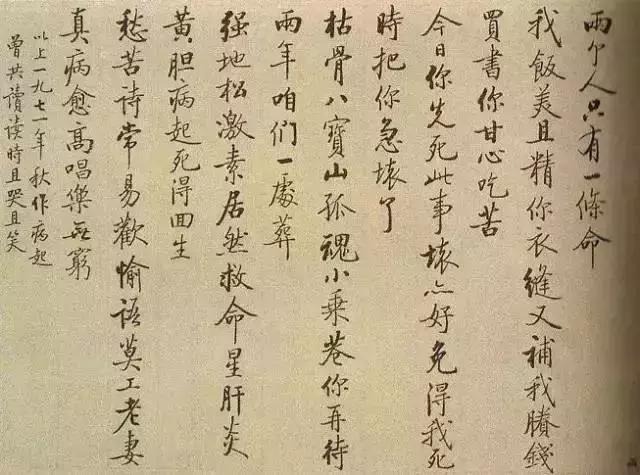 兩个人只有一條命
我飯美且精你衣縫又補我賸錢
買書你甘心吃苦
今日你先死此事壞亦好免得我死
時把你急壞了
枯骨八寶山孤魂小乘巷你再待
兩年咱們一處葬
强地松激素居然救命星肝炎
黄胆病起死得回生
愁苦诗常易歡愉语莫工老妻
真病愈高唱樂無窮
以上一九七一年秋作病起
曾共讀读時且哭且笑